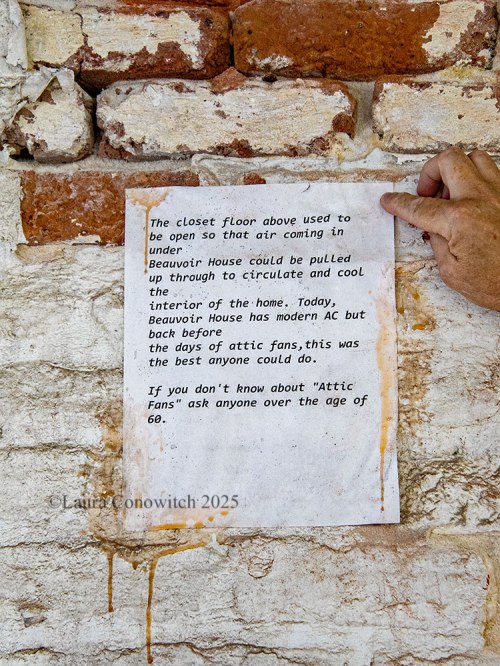 The closet floor above used to
be open so that air coming in
under
Beauvoir House could be pulled
up through to circulate and cool
the
interior of the home. Today,
Beauvoir House has modern AC but
back before
the days of attic fans,this was
the best anyone could do.
If you don't know about "Attic
Fans" ask anyone over the age of
60.
©Laura Conowitch 2025